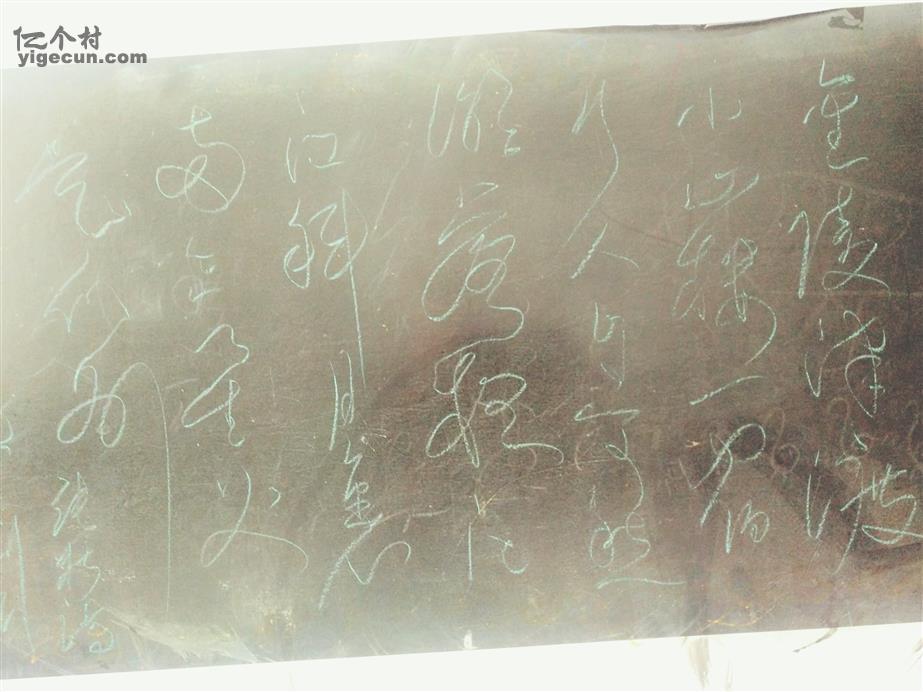 亿个村
yigecun.com
金陵津渡
小山楼一宿
行人自可愁
潮落夜
江斜月里
两三星火
是瓜州 张祜诗